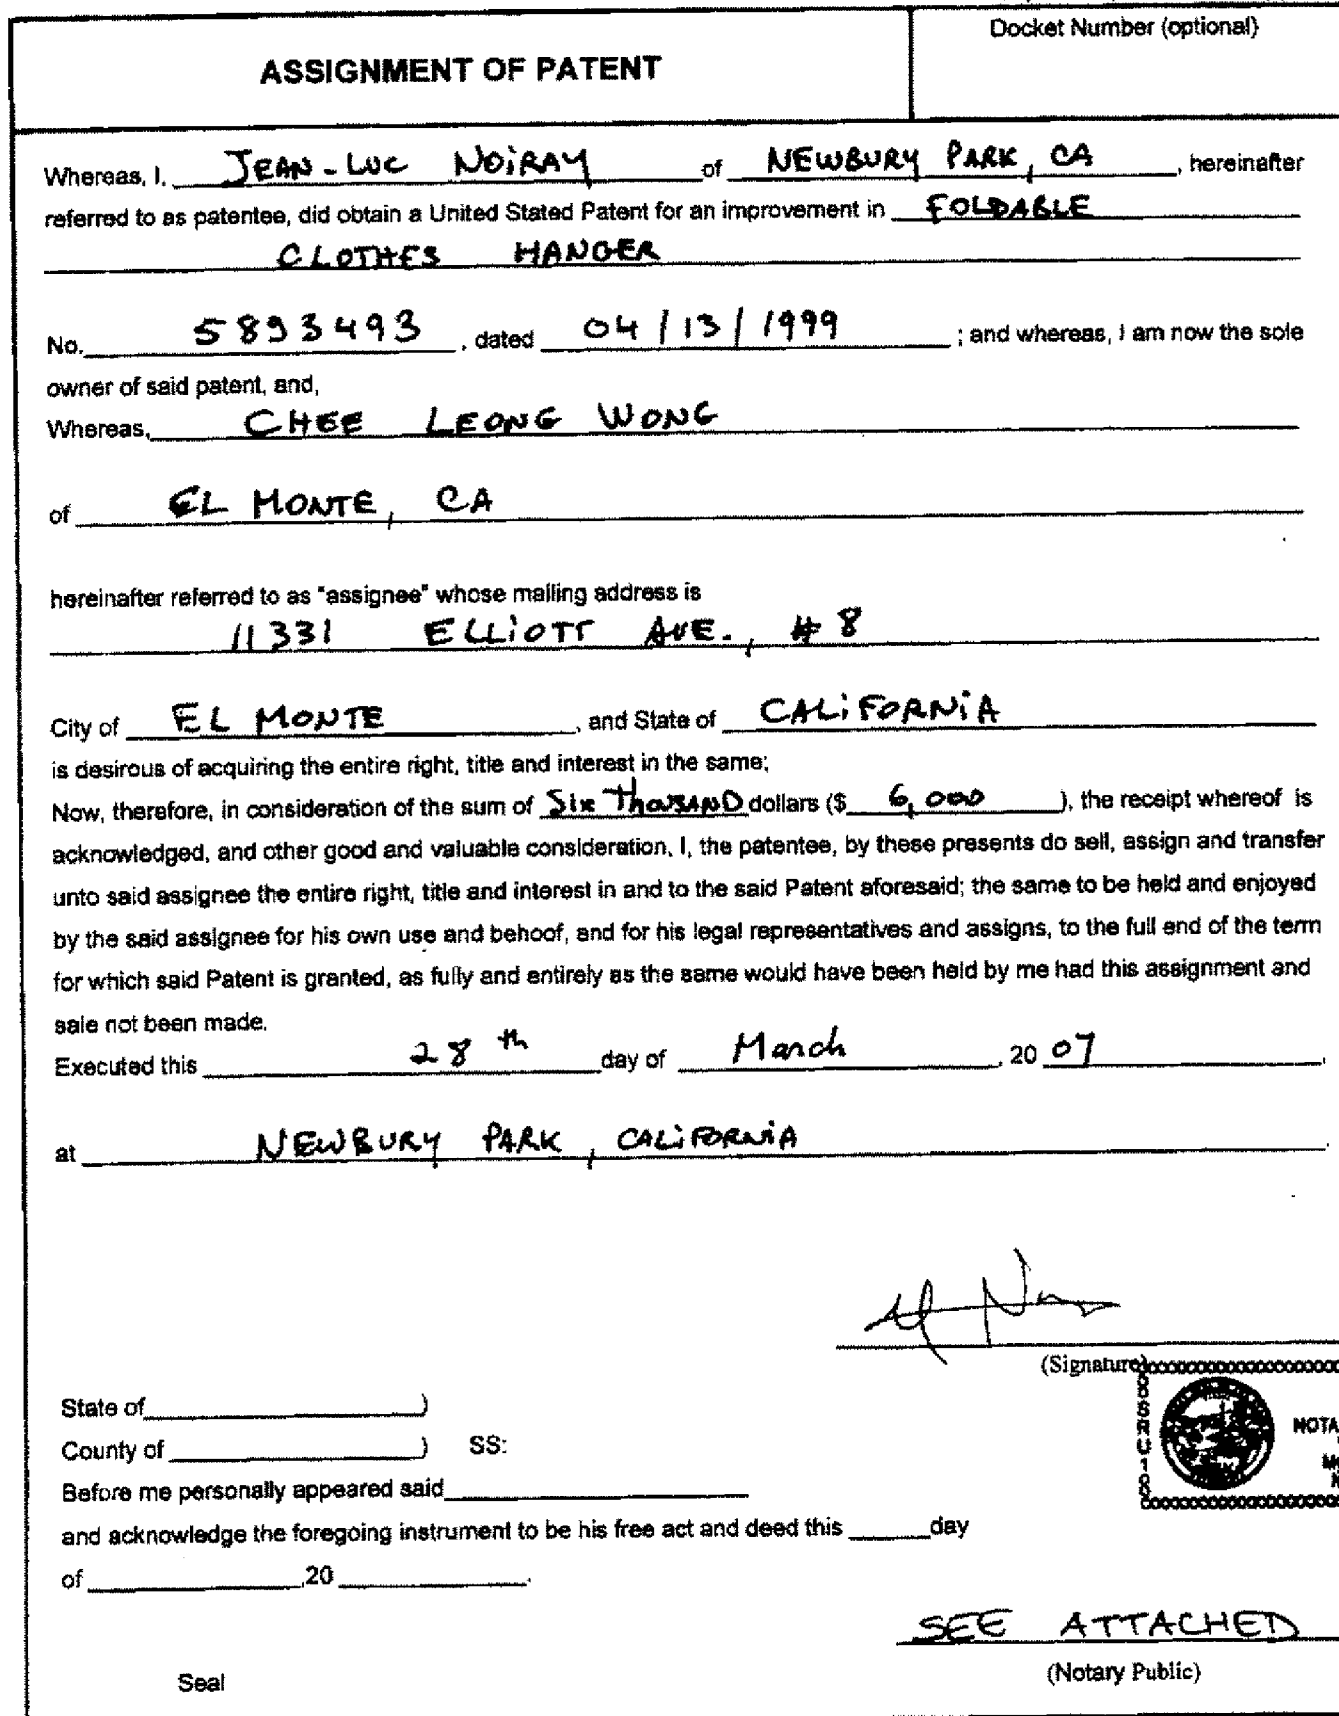 Docket Number (optional)
ASSIGNMENT OF PATENT
Whereas, I, JEAN-LUC NOIRAY of NEWBURY PARK, CA, hereinafter
referred to as patentee, did obtain a United Stated Patent for an improvement in FOLDABLE
CLOTHES HANGER
No. 5893493, dated 04/13/1999; and whereas, I am now the sole
owner of said patent, and,
Whereas, CHEE LEONG WONG
of EL MONTE, CA
hereinafter referred to as "assignee" whose mailing address is
11331 ELLIOTT AVE., #8
City of EL MONTE, and State of CALIFORNIA
is desirous of acquiring the entire right, title and interest in the same;
Now, therefore, in consideration of the sum of Six Thousand dollars ($ 6,000), the receipt whereof is
acknowledged, and other good and valuable consideration, I, the patentee, by these presents do sell, assign and transfer
unto said assignee the entire right, title and interest in and to the said Patent aforesaid; the same to be held and enjoyed
by the said assignee for his own use and behoof, and for his legal representatives and assigns, to the full end of the term
for which said Patent is granted, as fully and entirely as the same would have been held by me had this assignment and
sale not been made.
Executed this 28th day of March, 20 07,
at NEWBURY PARK, CALIFORNIA.
(Signature)
NOTA
State of )
County of ) SS:
Before me personally appeared said
and acknowledge the foregoing instrument to be his free act and deed this day
of ,20 .
SEE ATTACHED
(Notary Public)
Seal